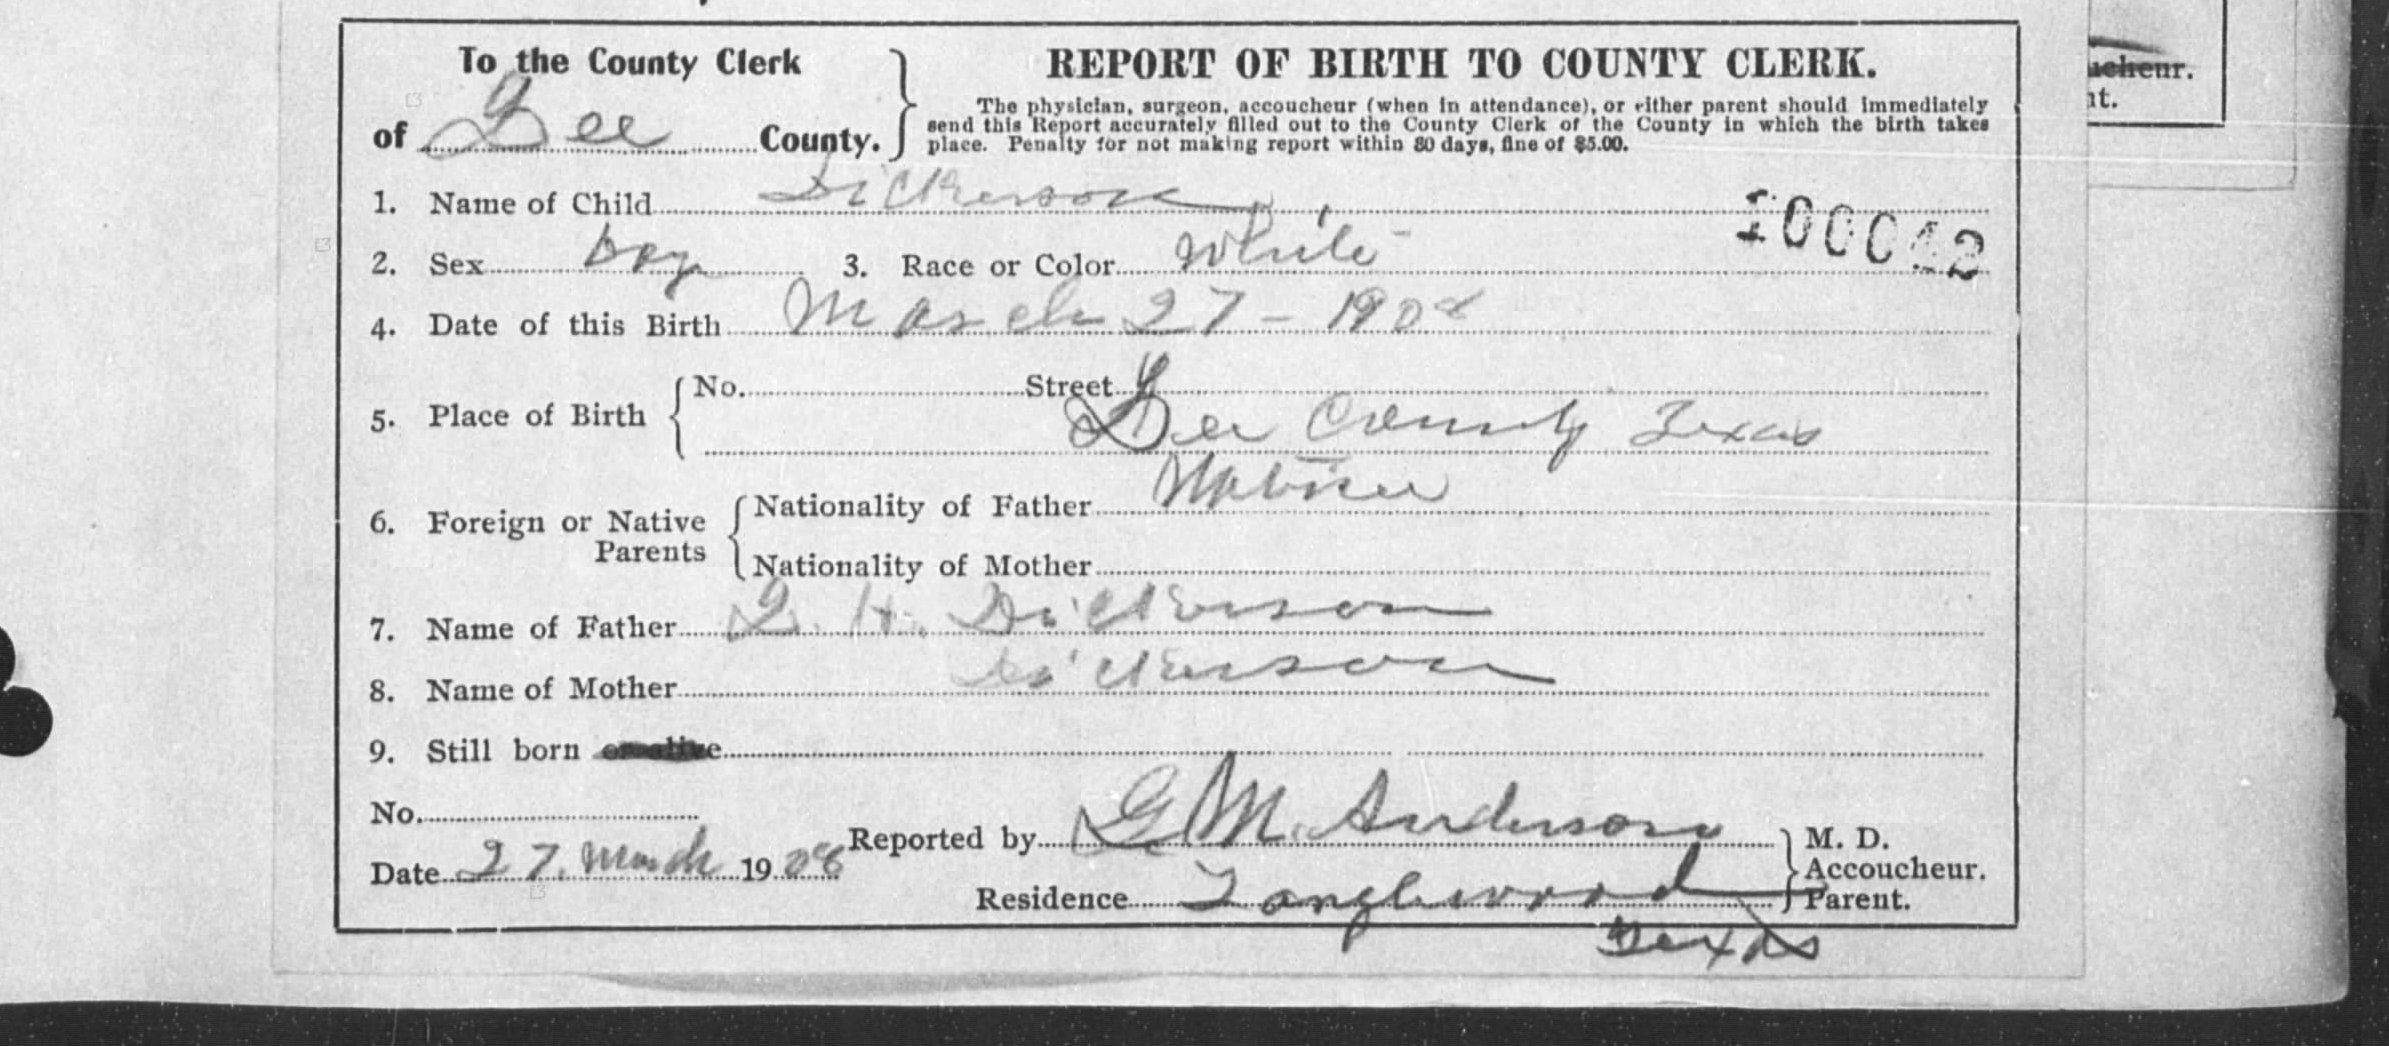 To the County Clerk
of Lee County.
REPORT OF BIRTH TO COUNTY CLERK.
The physician, surgeon, accoucheur (when in attendance), or either parent should immediately
send this Report accurately filled out to the County Clerk of the County in which the birth takes
place. Penalty for not making report within 30 days, fine of $5.00.
1. Name of Child Dickerson
100042
2. Sex boy 3. Race or Color White
4. Date of this Birth March 27 - 1908
5. Place of Birth { No. Street
Lee County Texas
6. Foreign or Native Parents { Nationality of Father Native
Nationality of Mother
7. Name of Father L. H. Dickerson
8. Name of Mother Dickerson
9. Still born or alive
No.
Date 27. March 1908
Reported by G M. Anderson
M. D.
Accoucheur.
Parent.
Residence Tanglewood
Texas
ucheur.
nt.